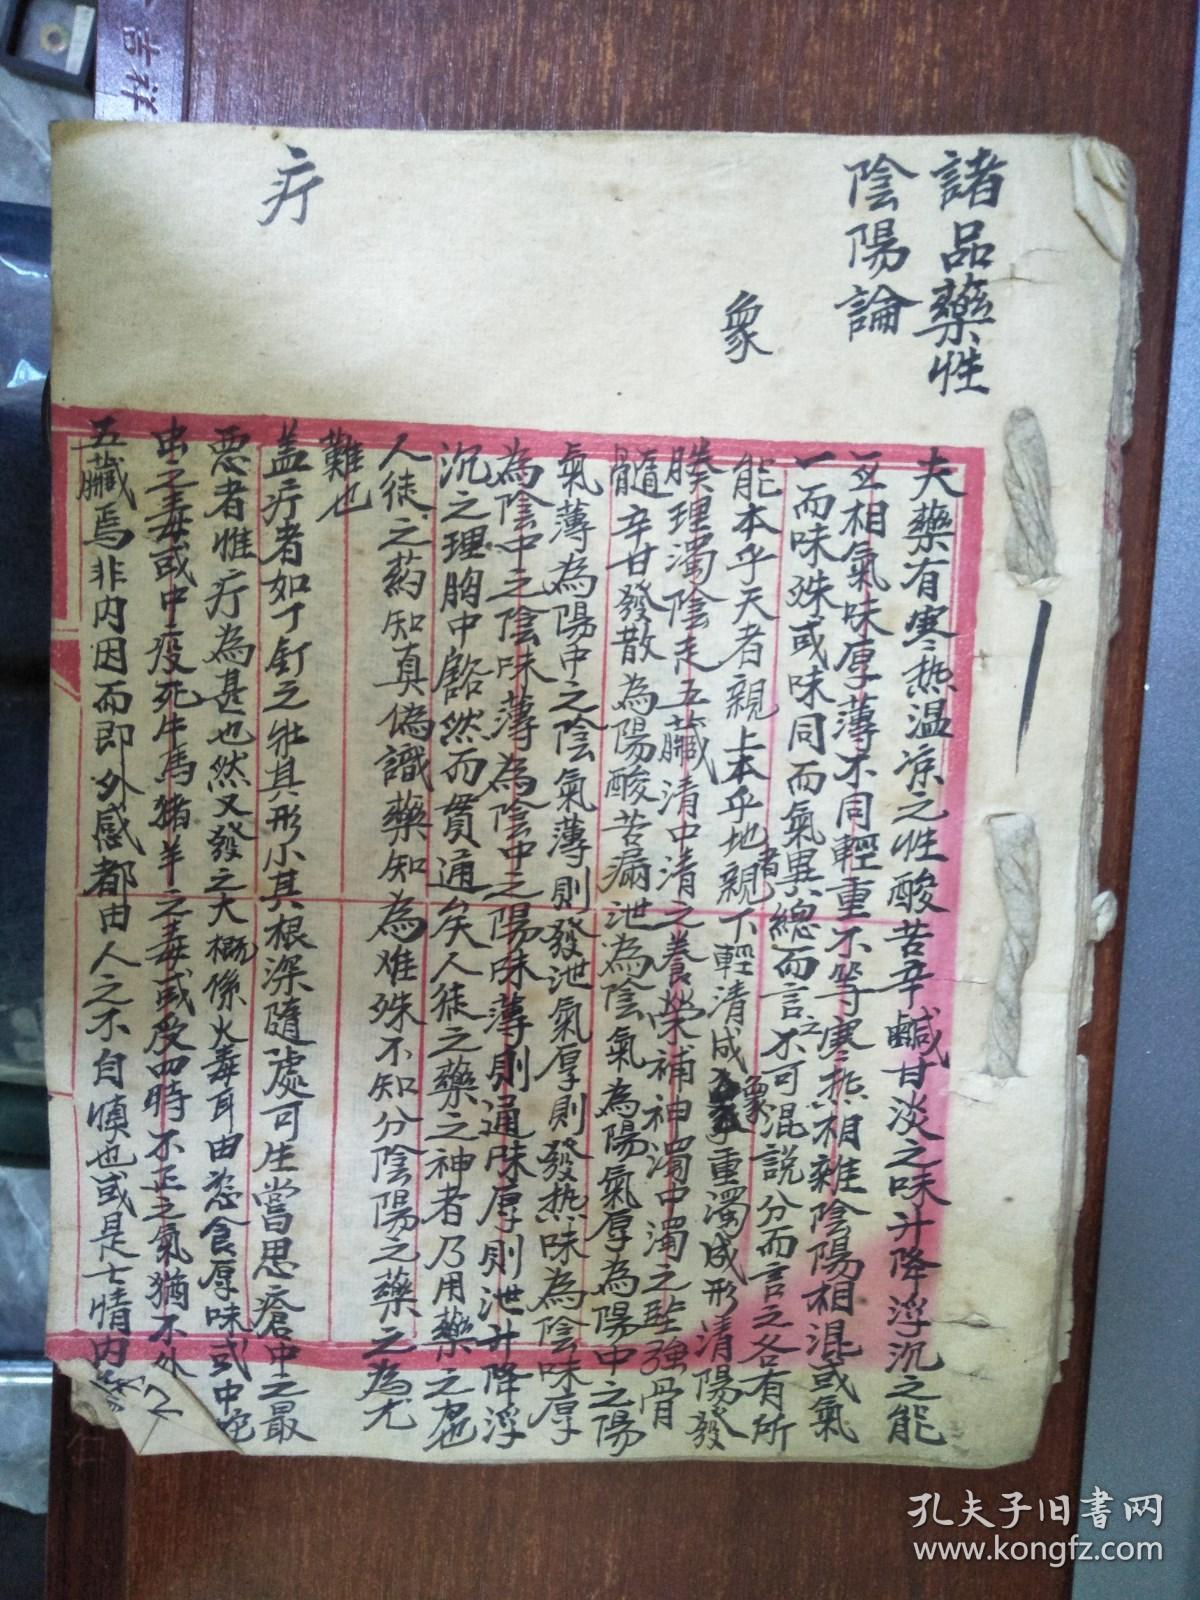 諸品藥性
陰陽論
象
疔
夫藥有寒熱温涼之性酸苦辛鹹甘淡之味升降浮沉之能
互相氣味厚薄不同輕重不等寒熱相雜陰陽相混或氣
一而味殊或味同而氣異總而言之不可混說分而言之各有所
能本乎天者親上本乎地者親下輕清成象重濁成形清陽發
腠理濁陰走五臟清中清之養榮補神濁中濁之堅強骨
髓辛甘發散為陽酸苦漏泄為陰氣為陽氣厚為陽中之陽
氣薄為陽中之陰氣薄則發泄氣厚則發热味為陰味厚
為陰中之陰味薄為陰中之陽味薄則通味厚則泄升降浮
沉之理胸中豁然而貫通矣人徒之藥之神者乃用藥之也
人徒之药知真偽識藥知為难殊不知分陰陽之藥之為尤
難也
盖疔者如丁釘之壯其形小其根深隨處可生嘗思瘡中之最
惡者惟疔為甚也然又發之大概係火毒耳由恣食厚味或中蛇
虫之毒或中疫死牛馬猪羊之毒或受四時不正之氣猶不外
五臟焉非内因而即外感都由人之不自慎也或是七情内
吉祥
孔夫子旧书网
www.kongfz.com